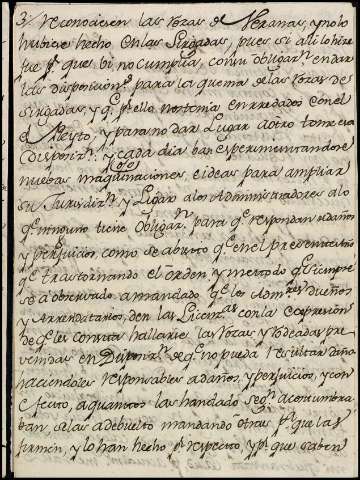 3/ reconociesen las rozas de Veranas, y no lo
hubiese hecho en las Singadas, pues si alli lo hizo
fue pr. que bi no cumplia con su obligasn. en dar
las disposicions. para la quema de las rozas de
singadas, y qe. pr. ello nos tenia enrredados con el
el Pleyto, y para no dar Lugar a otro tome esa
Disposizn. y cada dia ban experimentandose
nuebas maquinaciones e ideas para ampliar
su Jurisdizn. y Lugar a los Administradores a lo
qe. ninguno tiene Obligan. para qe. respondan a daños
y perjuicios, como se a bisto qe. en el presente año
qe. trastornando el orden y metodo qe. siempre
se a observado a mandado qe. los Admres. dueños
y Arrendatarios, den las Licenzas con la expresion
de qe. les consta hallarse las rozas y rodeadas pre
venidas en Disposizn. de qe. no pueda resultar daño
haciendoles responsables a daños, y perjuicios, y con
efecto, a quantos las han dado segn. acostumbra
ban, se las a debuelto mandando otras pr. que las
firmen, y lo han hecho pr. respecto, y pr. que saben